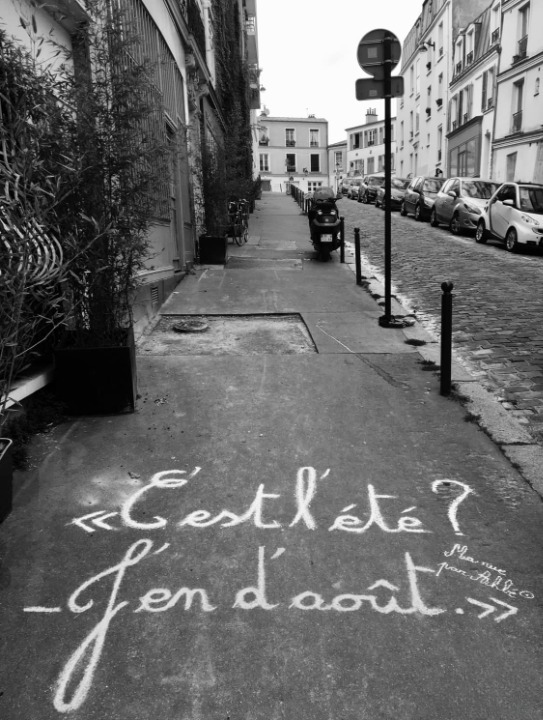 « C'est l'été ?
- J'en d'août. »
Ma rue
par Achbé ©